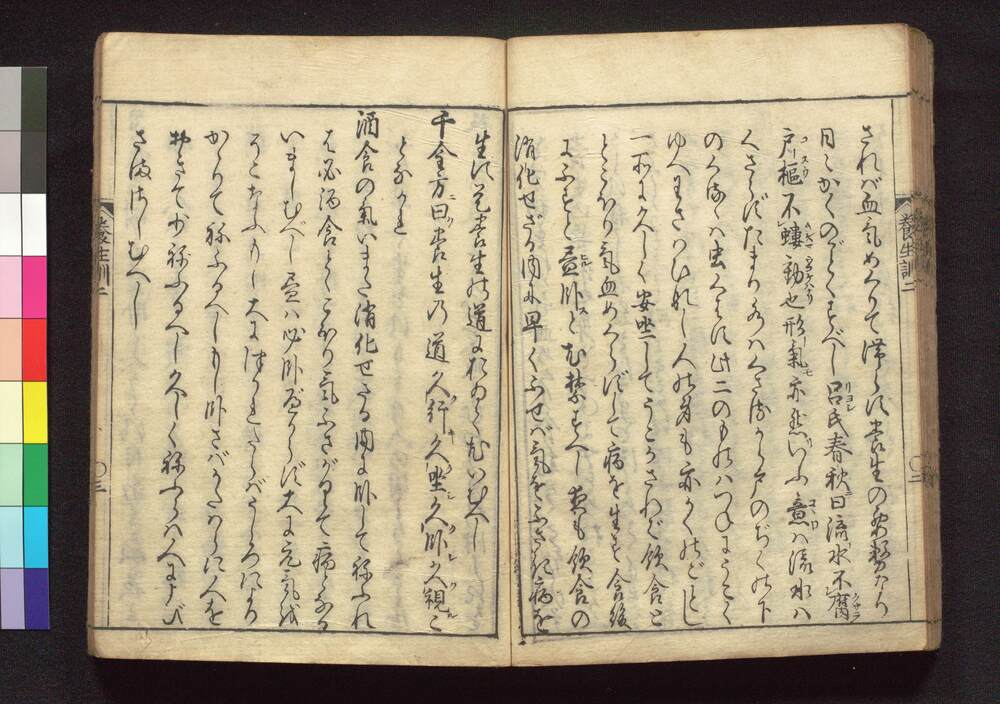 されば血気めぐりて滞らず養生の要務なり
日々かくのごとくすべし呂氏春秋曰流水不腐
戸枢不螻動也形気亦然いふ意は流水は
くさらずたまり水はくさる から戸のぢくの下
のくるゝは虫くはず此二のものはつねにうごく
ゆへわざはひなし人の身も亦かくのごとし
一所に久しく安坐してうごかざれば飲食と
とゞこほり気血めぐらずして病を生ず食後
にふすと昼臥すと尤禁ずべし夜も飲食の
消化せざる内に早くふせば気をふさぎ病を
生ず是養生の道におゐて尤いむべし
千金方曰養生の道久行久坐久臥久視こ
となかれ
酒食の気いまだ消化せざる内に臥してねふれ
ば必酒食とゞこほり気ふさがりて病となる
いましむべし昼は必臥べからず大に元気を
そこなふもし大につかれたらばうしろによりか
かりてねふるべしもし臥さばかたはらに人を
おきて少ねふるべし久しくねふらば人によび
さまさしむべし
養生訓二
〇二
養生訓二
〇三